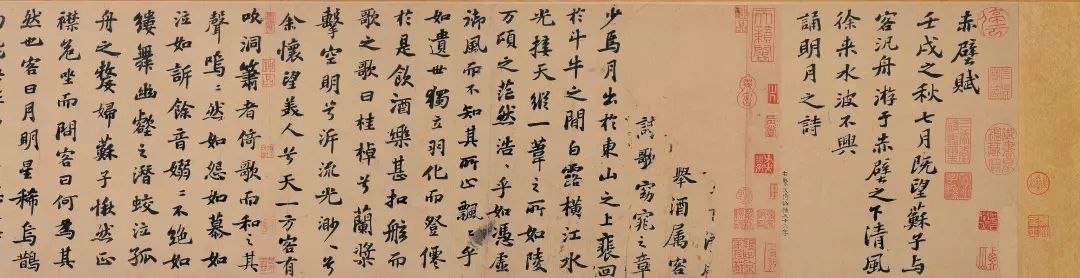 赤壁賦
壬戌之秋七月既望蘇子与
客汎舟游于赤壁之下清風
徐来水波不興
誦明月之詩
舉酒属客
歌窈窕之章
少焉月出於東山之上裵回
於斗牛之間白露横江水
光接天縱一葦之所如陵
万頃之茫然浩〻乎如憑虚
御風而不知其所止飄〻乎
如遺世獨立羽化而登僊
於是飲酒樂甚扣舷而
歌之歌曰桂棹兮蘭槳
擊空明兮泝流光渺〻兮
余懷望美人兮天一方客有
吹洞簫者倚歌而和之其
聲嗚〻然如怨如慕如
泣如訴餘音嫋〻不絶如
縷舞幽壑之潛蛟泣孤
舟之嫠婦蘇子愀然正
襟危坐而問客曰何為其
然也客曰月明星稀烏鵲